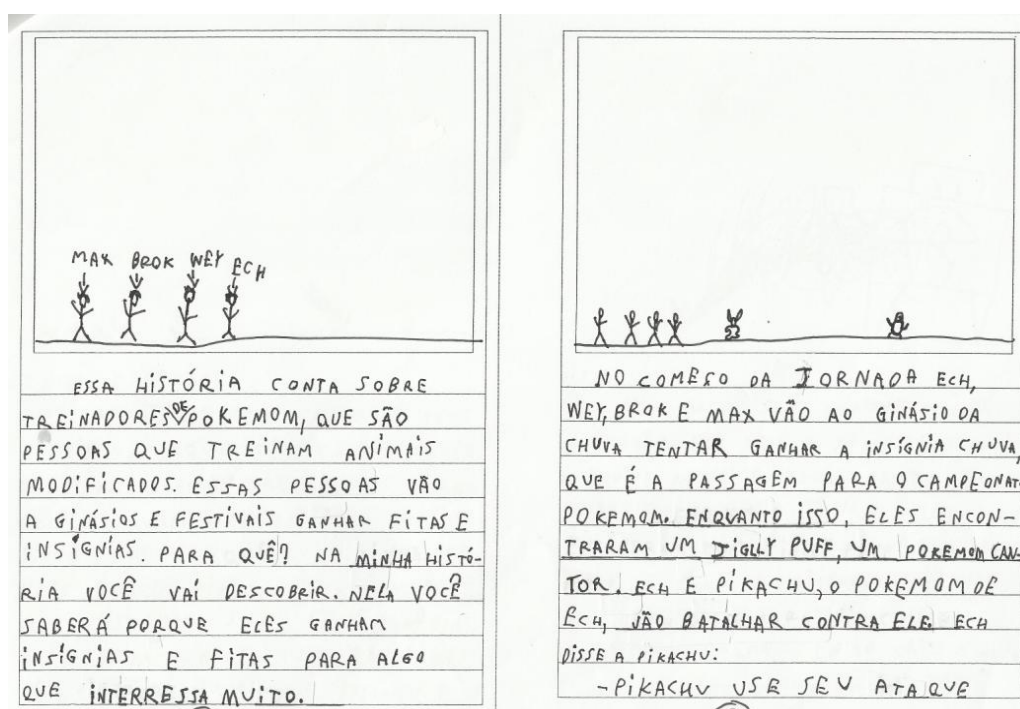 MAX BROK WEY ECH
ESSA HISTÓRIA CONTA SOBRE
TREINADORES DE POKEMOM, QUE SÃO
PESSOAS QUE TREINAM ANIMAIS
MODIFICADOS. ESSAS PESSOAS VÃO
A GINÁSIOS E FESTIVAIS GANHAR FITAS E
INSÍGNIAS. PARA QUÊ? NA MINHA HISTÓ-
RIA VOCÊ VAI DESCOBRIR. NELA VOCÊ
SABERÁ PORQUE ELES GANHAM
INSÍGNIAS E FITAS PARA ALGO
QUE INTERRESSA MUITO.
NO COMEÇO DA JORNADA ECH,
WEY, BROK E MAX VÃO AO GINÁSIO DA
CHUVA TENTAR GANHAR A INSÍGNIA CHUVA,
QUE É A PASSAGÉM PARA O CAMPEONAT
POKEMOM. ENQUANTO ISSO, ELES ENCON-
TRARAM UM JIGLLY PUFF, UM POKEMOM CAN-
TOR. ECH E PIKACHU, O POKEMOM DE
ECH, VÃO BATALHAR CONTRA ELE. ECH
DISSE A PIKACHU:
-PIKACHU USE SEU ATAQUE